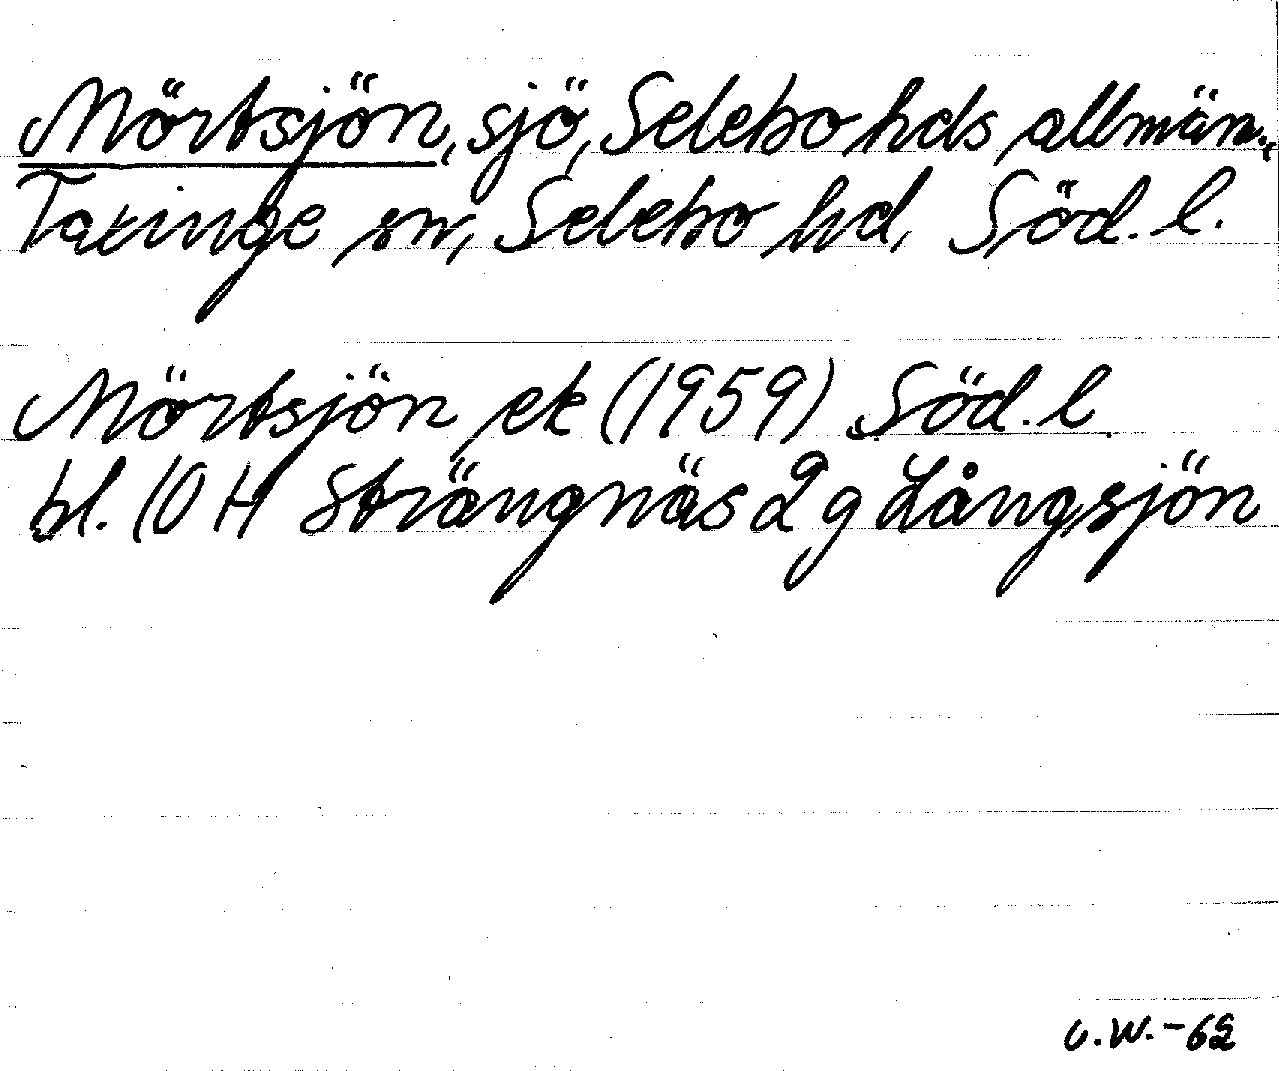 Mörtsjön, sjö, Selebo hds allmän.,
Taxinge sn, Selebo hd, Söd. l.
Mörtsjön ek (1959) Söd. l.
bl. 10 H Strängnäs 2 g Långsjön
C.W.-62